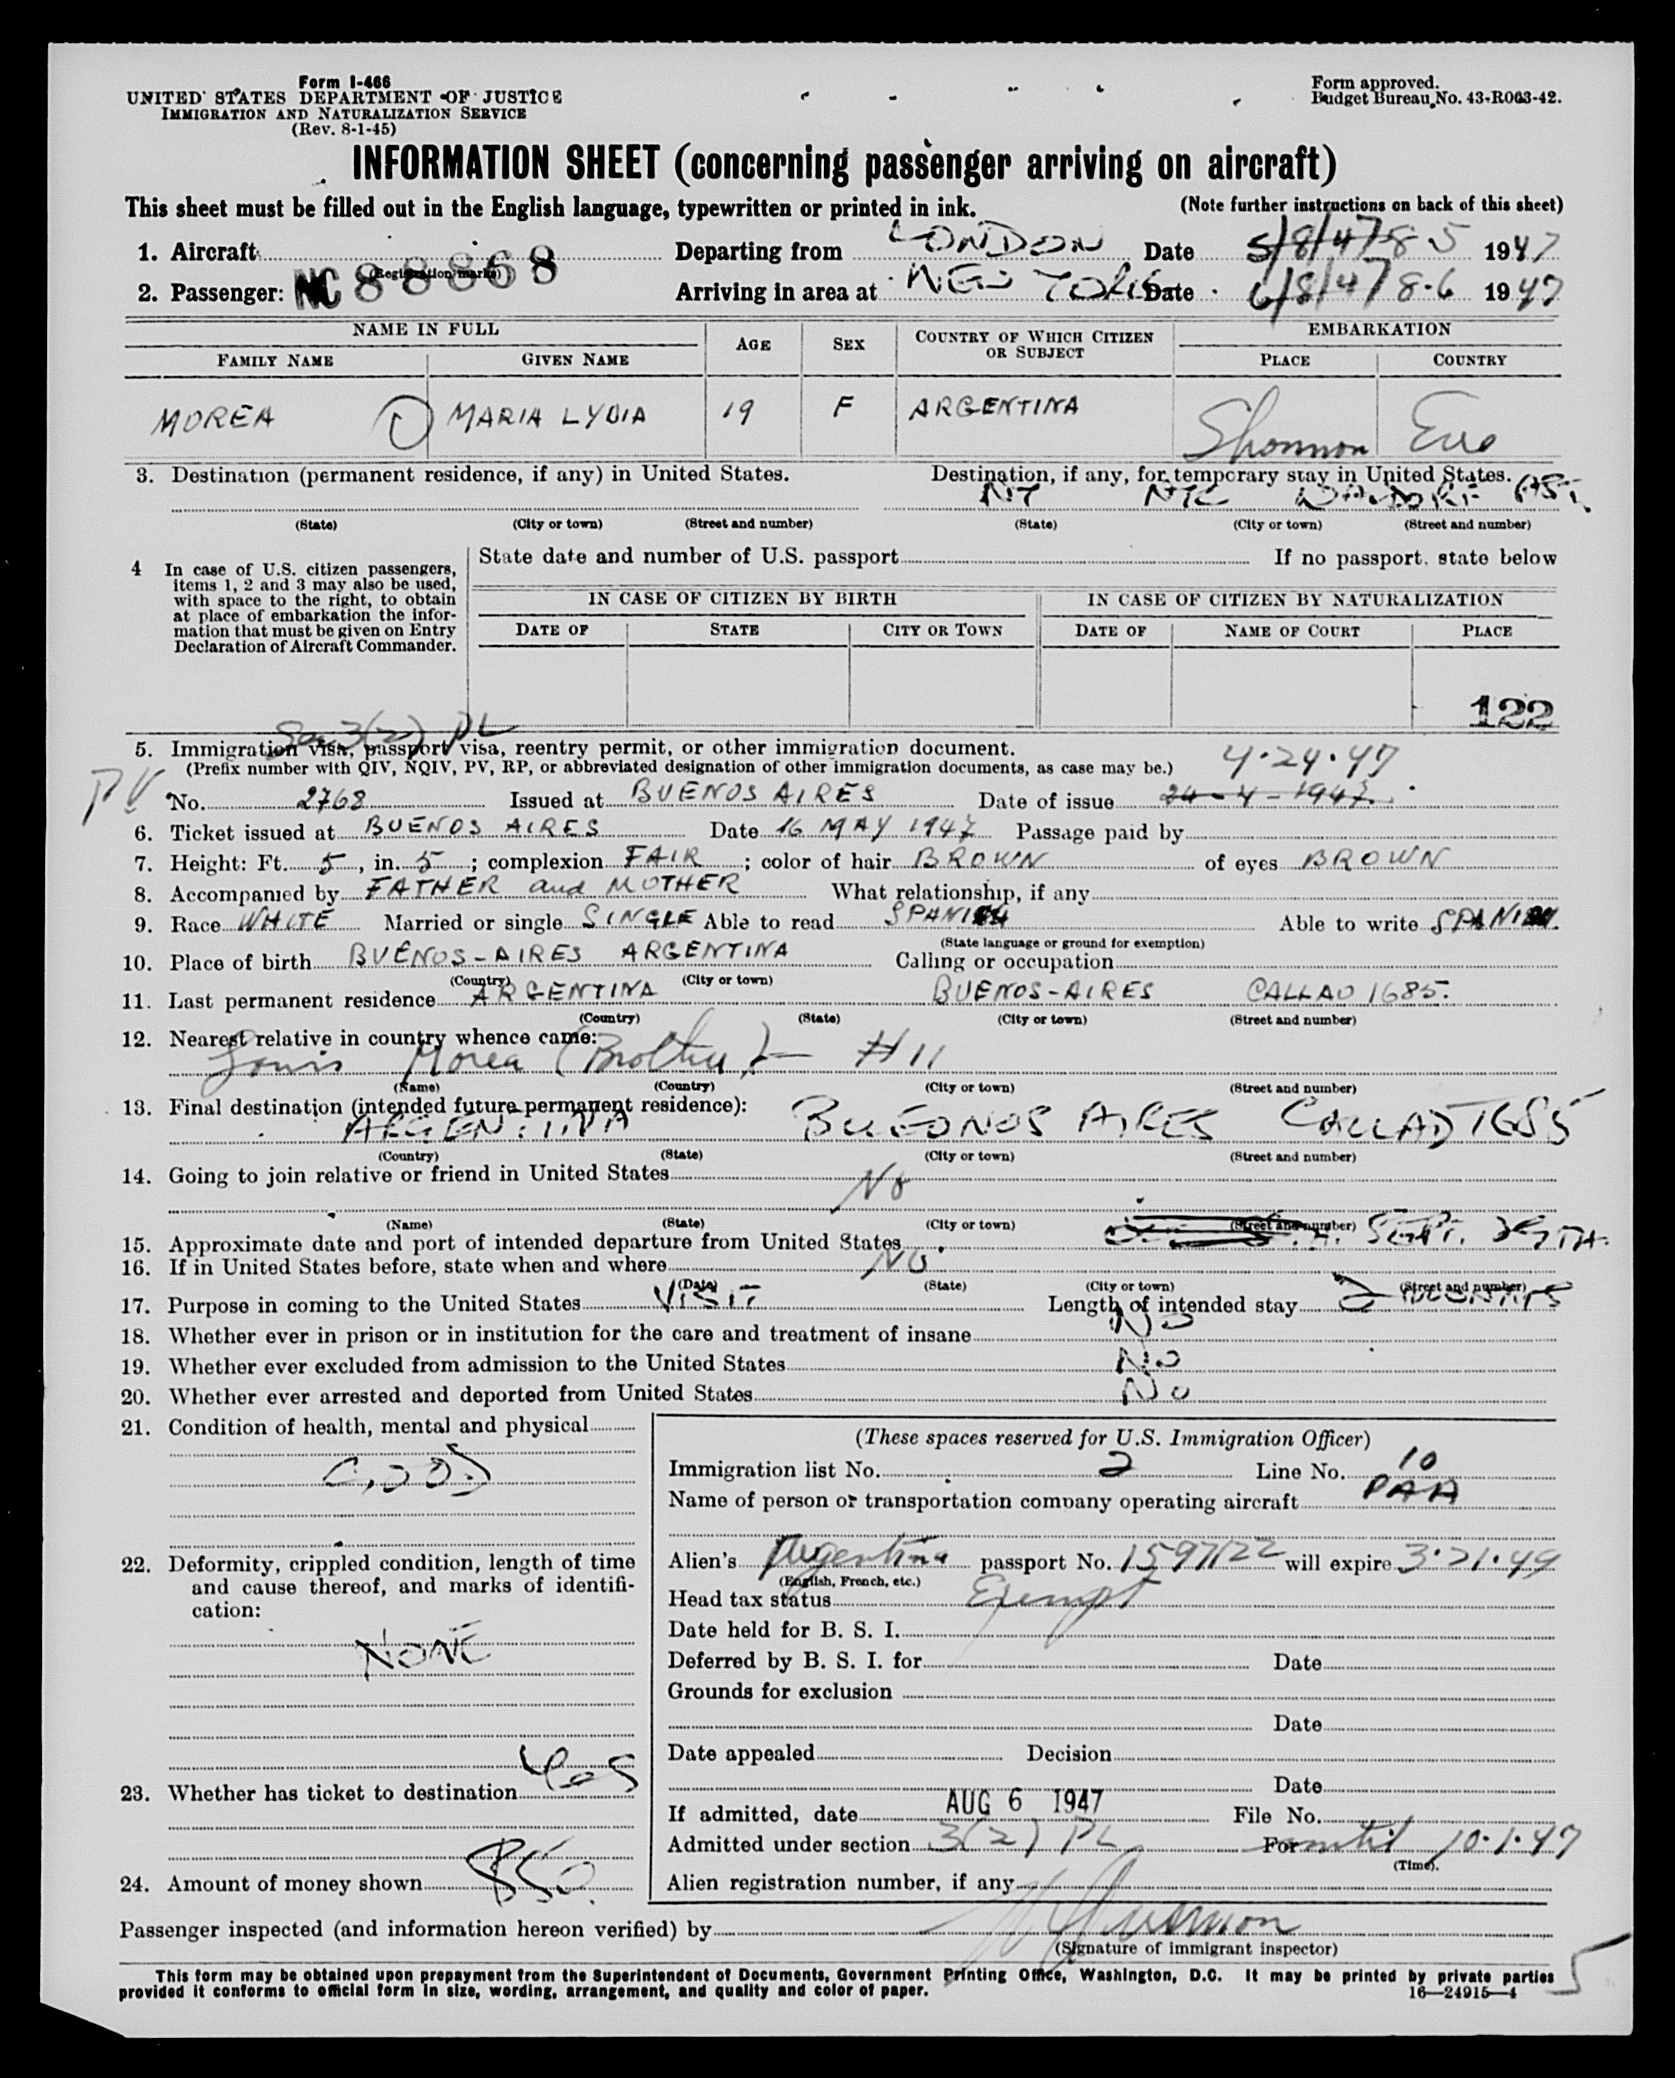 Form I-466
UNITED STATES DEPARTMENT OF JUSTICE
IMMIGRATION AND NATURALIZATION SERVICE
(Rev. 8-1-45)
Form approved.
Budget Bureau No. 43-R063-42.
INFORMATION SHEET (concerning passenger arriving on aircraft)
This sheet must be filled out in the English language, typewritten or printed in ink. (Note further instructions on back of this sheet)
1. Aircraft NC 88868 Departing from LONDON Date 5/8/47 8-5 1947
(Registration marks)
2. Passenger: Arriving in area at NEW YORK Date 6/8/47 8-6 1947
NAME IN FULL AGE SEX COUNTRY OF WHICH CITIZEN OR SUBJECT EMBARKATION
FAMILY NAME GIVEN NAME PLACE COUNTRY
MOREA MARIA LYDIA 19 F ARGENTINA Shannon Eire
3. Destination (permanent residence, if any) in United States. Destination, if any, for temporary stay in United States.
NY NYC WALDORF AST.
(State) (City or town) (Street and number) (State) (City or town) (Street and number)
4 In case of U.S. citizen passengers, items 1, 2 and 3 may also be used, with space to the right, to obtain at place of embarkation the information that must be given on Entry Declaration of Aircraft Commander.
State date and number of U.S. passport If no passport, state below
IN CASE OF CITIZEN BY BIRTH IN CASE OF CITIZEN BY NATURALIZATION
DATE OF STATE CITY OR TOWN DATE OF NAME OF COURT PLACE
122
Sec 3(2) PL
5. Immigration visa, passport visa, reentry permit, or other immigration document.
(Prefix number with QIV, NQIV, PV, RP, or abbreviated designation of other immigration documents, as case may be.) 4-24-47
PV No. 2768 Issued at BUENOS AIRES Date of issue 24-4-1947
6. Ticket issued at BUENOS AIRES Date 16 MAY 1947 Passage paid by
7. Height: Ft. 5, in. 5; complexion FAIR; color of hair BROWN of eyes BROWN
8. Accompanied by FATHER and MOTHER What relationship, if any
9. Race WHITE Married or single SINGLE Able to read SPANISH Able to write SPANISH
(State language or ground for exemption)
10. Place of birth BUENOS-AIRES ARGENTINA Calling or occupation
(Country) (City or town)
11. Last permanent residence ARGENTINA BUENOS-AIRES CALLAO 1685.
(Country) (State) (City or town) (Street and number)
12. Nearest relative in country whence came:
Louis Morea (Brother) - #11
(Name) (Country) (City or town) (Street and number)
13. Final destination (intended future permanent residence):
ARGENTINA BUEONOS AIRES CALLAO 1685
(Country) (State) (City or town) (Street and number)
14. Going to join relative or friend in United States No
(Name) (State) (City or town) (Street and number)
15. Approximate date and port of intended departure from United States SEPT. 25TH.
16. If in United States before, state when and where NO
(Date) (State) (City or town) (Street and number)
17. Purpose in coming to the United States VISIT Length of intended stay 2 MONTHS
18. Whether ever in prison or in institution for the care and treatment of insane No
19. Whether ever excluded from admission to the United States No
20. Whether ever arrested and deported from United States No
21. Condition of health, mental and physical
GOOD
22. Deformity, crippled condition, length of time and cause thereof, and marks of identification:
NONE
23. Whether has ticket to destination Yes
24. Amount of money shown $50.
(These spaces reserved for U.S. Immigration Officer)
Immigration list No. 2 Line No. 10
Name of person or transportation company operating aircraft PAA
Alien's Argentina passport No. 1597122 will expire 3-21-49
(English, French, etc.)
Head tax status Exempt
Date held for B. S. I.
Deferred by B. S. I. for Date
Grounds for exclusion
Date
Date appealed Decision
Date
If admitted, date AUG 6 1947 File No.
Admitted under section 3(2) PL For until 10-1-47
(Time).
Alien registration number, if any
Passenger inspected (and information hereon verified) by
(Signature of immigrant inspector)
This form may be obtained upon prepayment from the Superintendent of Documents, Government Printing Office, Washington, D.C. It may be printed by private parties
provided it conforms to official form in size, wording, arrangement, and quality and color of paper. 16—24915—4
5